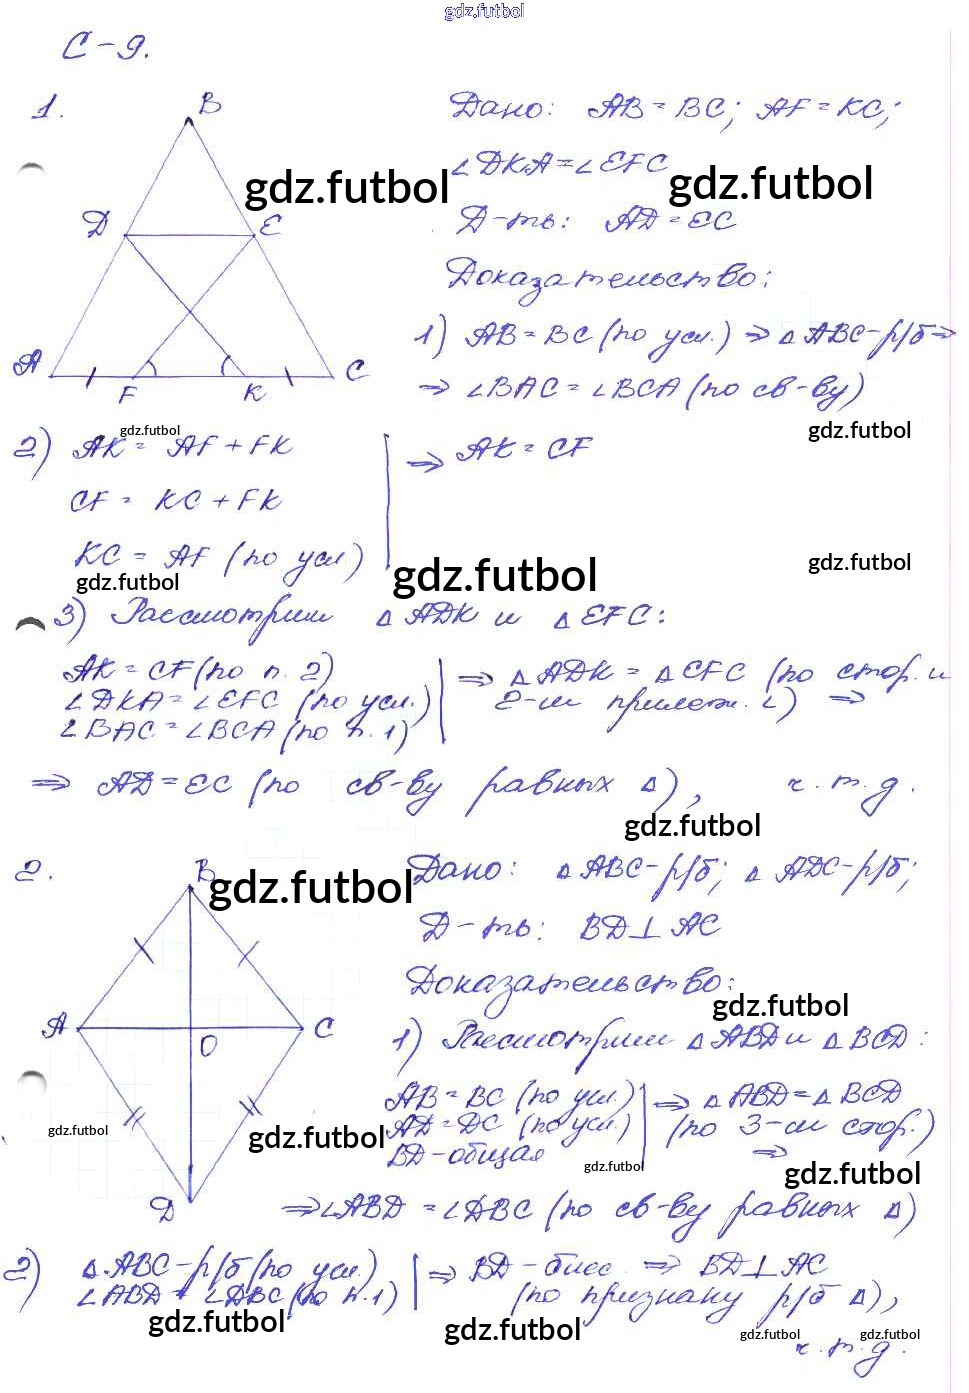 gdz.futbol
С-9.
1.
B
D
E
A
F
K
C
Дано: AB = BC; AF = KC;
∠DKA = ∠EFC
gdz.futbol
gdz.futbol
Д-ть: AD = EC
Доказательство:
1) AB = BC (по усл.) ⇒ △ABC - р/б ⇒
⇒ ∠BAC = ∠BCA (по св-ву)
gdz.futbol
gdz.futbol
2) AK = AF + FK
CF = KC + FK
KC = AF (по усл)
⇒ AK = CF
gdz.futbol
gdz.futbol
gdz.futbol
3) Рассмотрим △ADK и △EFC:
AK = CF (по п. 2)
∠DKA = ∠EFC (по усл.)
∠BAC = ∠BCA (по п. 1)
⇒ △ADK = △CFC (по стор. и
2-м прилеж. ∠) ⇒
⇒ AD = EC (по св-ву равных △), ч.т.д.
gdz.futbol
2.
B
gdz.futbol
A
O
C
D
Дано: △ABC - р/б; △ADC - р/б;
Д-ть: BD ⊥ AC
Доказательство:
gdz.futbol
1) Рассмотрим △ABD и △BCD:
AB = BC (по усл)
AD = DC (по усл.)
BD - общая
⇒ △ABD = △BCD
(по 3-м стор.)
⇒
gdz.futbol
gdz.futbol
gdz.futbol
gdz.futbol
⇒ ∠ABD = ∠DBC (по св-ву равных △)
2) △ABC - р/б (по усл)
∠ABD = ∠DBC (по п. 1)
⇒ BD - бисс. ⇒ BD ⊥ AC
(по признаку р/б △),
ч.т.д.
gdz.futbol
gdz.futbol
gdz.futbol
gdz.futbol